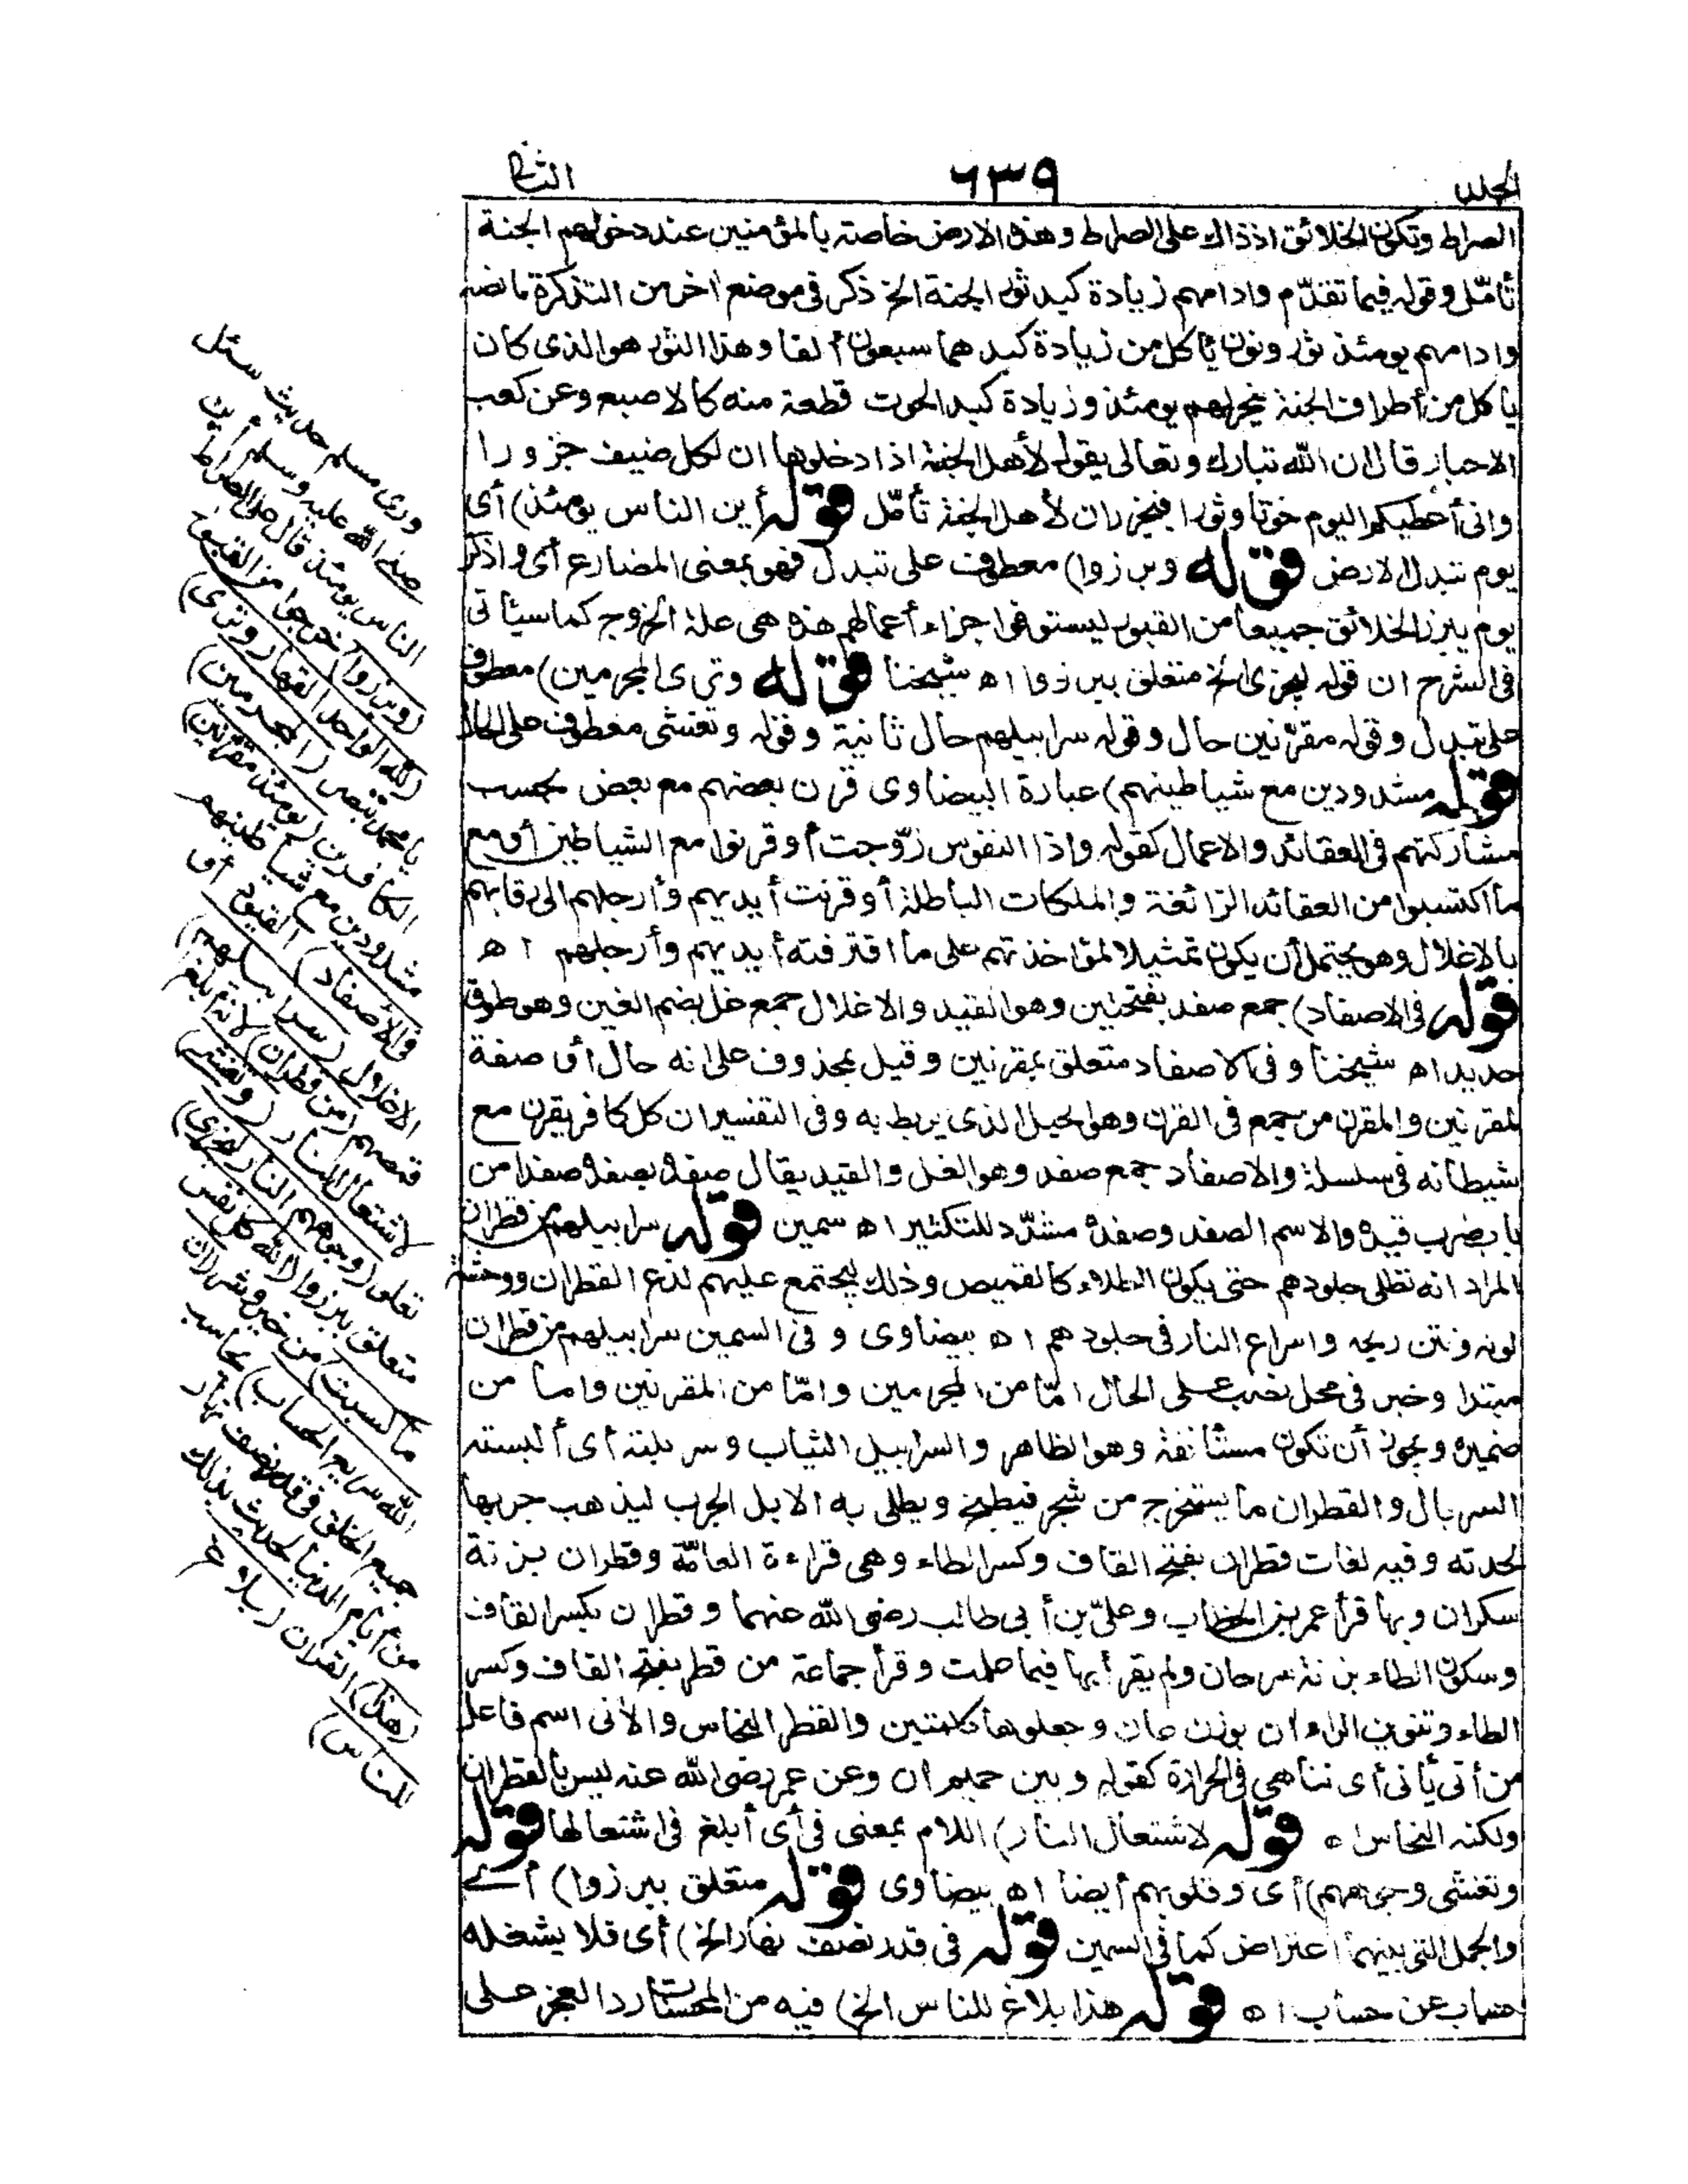 الجلد
٦٣٩
الثانى
الصراط وتكون الخلائق اذ ذاك على الصراط وهذه الارض خاصة بالمؤمنين عند دخولهم الجنة
تأمّل وقوله فيما تقدّم وادامهم زيادة كبد ثور الجنة الخ ذكر فى موضع اخر من التذكرة ما نصه
وادامهم يومئذ ثور ونون يأكل من زيادة كبدهما سبعون ألفا وهذا الثور هو الذى كان
يأكل من أطراف الجنة ينحر لهم يومئذ وزيادة كبد الحوت قطعة منه كالاصبع وعن كعب
الاحبار قال ان الله تبارك وتعالى يقول لأهل الجنة اذا دخلوها ان لكل ضيف جزورا
وانى أعطيكم اليوم حوتا وثورا فينحران لأهل الجنة تأمّل قوله أين الناس يومئذ) أى
يوم تبدل الارض قوله وبرزوا) معطوف على تبدل فهو بمعنى المضارع أى واذكر
يوم يبرز الخلائق جميعا من القبور ليستوفوا جزاء أعمالهم هذه هى علة الخروج كما سيأتى
فى الشرح ان قوله ليجزى الخ متعلق ببرزوا اه شيخنا قوله وترى المجرمين) معطوف
على تبدل وقوله مقرّنين حال وقوله سرابيلهم حال ثانية وقوله وتغشى معطوف على الحال
قوله مشدودين مع شياطينهم) عبارة البيضاوى قرن بعضهم مع بعض بحسب
مشاركتهم فى العقائد والاعمال كقوله واذا النفوس زوّجت أو قرنوا مع الشياطين أو مع
ما اكتسبوا من العقائد الزائغة والملكات الباطلة أو قرنت أيديهم وأرجلهم الى رقابهم
بالاغلال وهو يحتمل أن يكون تمثيلا لمؤاخذتهم على ما اقترفته أيديهم وأرجلهم اه
قوله فى الاصفاد) جمع صفد بفتحتين وهو القيد والاغلال جمع غل بضم الغين وهو طوق
حديد اه شيخنا وفى الاصفاد متعلق بمقرنين وقيل بمحذوف على انه حال أو صفة
لمقرنين والمقرن من جمع فى القرن وهو الحبل الذى يربط به وفى التفسير ان كل كافر يقرن مع
شيطانه فى سلسلة والاصفاد جمع صفد وهو الغل والقيد يقال صفده يصفده صفدا من
باب ضرب قيده والاسم الصفد وصفده مشدّد للتكثير اه سمين قوله سرابيلهم من قطران
المراد انه تطلى جلودهم حتى يكون الطلاء كالقميص وذلك ليجتمع عليهم لذع القطران ووحشة
لونه ونتن ريحه واسراع النار فى جلودهم اه بيضاوى وفى السمين سرابيلهم من قطران
مبتدا وخبر فى محل نصب على الحال امّا من المجرمين وامّا من المقرنين واما من
ضميره ويجوز أن تكون مستأنفة وهو الظاهر والسرابيل الثياب وسربلته أى ألبسته
السربال والقطران ما يستخرج من شجر فيطبخ ويطلى به الابل الجرب ليذهب جربها
لحدته وفيه لغات قطران بفتح القاف وكسر الطاء وهى قراءة العامّة وقطران بزنة
سكران وبها قرأ عمر بن الخطاب وعلىّ بن أبى طالب رضى الله عنهما وقطران بكسر القاف
وسكون الطاء بزنة سرحان ولم يقرأ بها فيما علمت وقرأ جماعة من قطر بفتح القاف وكسر
الطاء وتنوين الراء ان بوزن عان وجعلوها كلمتين والقطر النحاس والآنى اسم فاعل
من أتى يأنى أى تناهى فى الحرارة كقوله وبين حميم ان وعن عمر رضى الله عنه ليس بالقطران
ولكنه النحاس اه قوله لاشتعال النار) اللام بمعنى فى أى أبلغ فى اشتعالها قوله
وتغشى وجوههم) أى وقلوبهم أيضا اه بيضاوى قوله متعلق ببرزوا) أى
والجمل التى بينهما اعتراض كما فى السمين قوله فى قدر نصف نهار الخ) أى فلا يشغله
حساب عن حساب اه قوله هذا بلاغ للناس الخ) فيه من المحسنات رد العجز على
وروى مسلم حديث سئل
صلى الله عليه وسلم أين
الناس يومئذ قال على الصراط
(وبرزوا) خرجوا من القبور
(لله الواحد القهار وترى)
يا محمد تبصر (المجرمين)
الكافرين (يومئذ مقرنين)
مشدودين مع شياطينهم
(فى الأصفاد) القيود أو
الاغلال (سرابيلهم)
قمصهم (من قطران) لانه أبلغ
لاشتعال النار (وتغشى)
تعلو (وجوههم النار ليجزى)
متعلق ببرزوا (الله كل نفس
ما كسبت) من خير وشر (ان
الله سريع الحساب) يحاسب
جميع الخلق فى قدر نصف نهار
من أيام الدنيا لحديث بذلك
(هذا) القران (بلاغ
للناس)